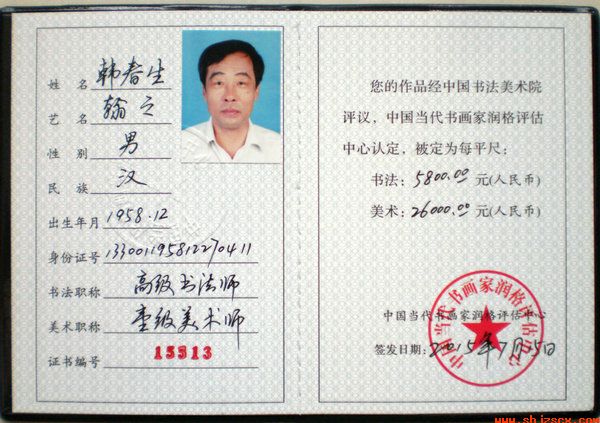 姓名 韩春生
艺名 翰之
性别 男
民族 汉
出生年月 1958.12
身份证号 133001195812270411
书法职称 高级书法师
美术职称 壹级美术师
证书编号 15513
您的作品经中国书法美术院
评议,中国当代书画家润格评估
中心认定,被定为每平尺:
书法:5800.00 元(人民币)
美术:26000.00 元(人民币)
中国当代书画家润格评估中心
中国当代书画家润格评估中心
签发日期:2015年7月15日
www.shjzscx.com